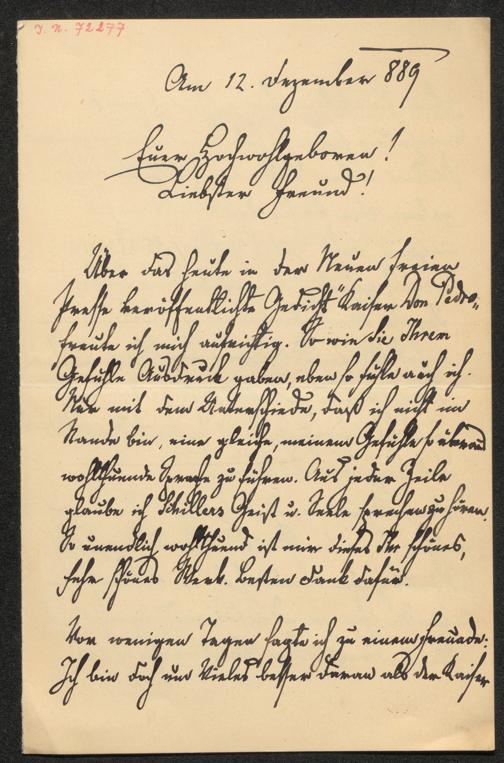 J. N. 72277
Am 12. Dezember 889
Euer Hochwohlgeboren!
Liebster Freund!
Über das heute in der Neuen freien
Presse veröffentlichte Gedicht "Kaiser Don Pedro"
freute ich mich aufrichtig. So wie Sie Ihrem
Gefühle Ausdruck gaben, eben so fühle auch ich.
Nur mit dem Unterschiede, daß ich nicht im
Stande bin, eine gleiche, meinem Gefühle so überaus
wohlthuende Sprache zu führen. Aus jeder Zeile
glaube ich Schillers Geist u. Seele sprechen zu hören.
So unendlich wohlthuend ist mir dieses Ihr schönes,
sehr schönes Werk. Besten Dank dafür.
Vor wenigen Tagen sagte ich zu einem Freunde:
Ich bin doch um Vieles besser daran als der Kaiser